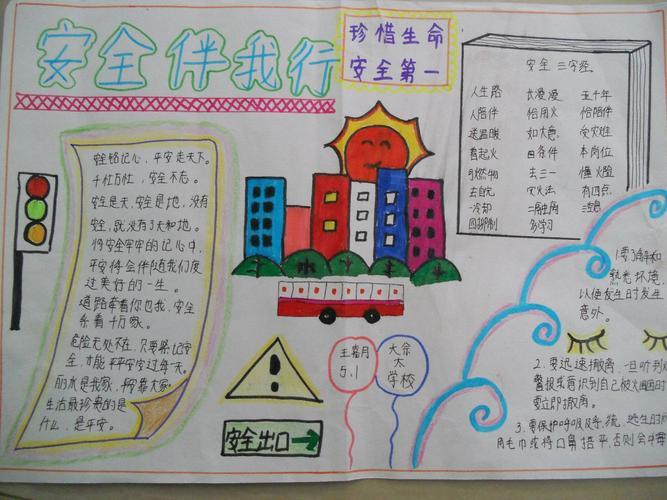 安全伴我行
珍惜生命
安全第一
安全铭记心，平安走天下。
千忙万忙，安全不忘。
安全是天，安全是地，没有
安全，就没有了天和地。
将安全牢牢的记心中，
平安将会伴随我们度
过美好的一生。
道路牵着你也我，安全
系着千万家。
危险无处不在，只要将记安
全，才能平平安安过每一天。
丽水是我家，
生活最珍贵的是
什么，是平安。
王嘉月
5.1
大余
太
学校
安全出口
安全 三字经
人生路 长漫漫 五千年
人陪伴 恰用火 恰陪伴
送温暖 如大意 受灾难
着起火 四条件 本岗位
可燃物 去三一 懂火险
去自完 灾火法 有四点
一冷却 二隔离
四抑制 多学习
1.要了解和
熟悉环境
以便发生时发生
意外。
2.要迅速撤离，一旦听到
警报或意识到自己被火围困时
要立即撤离。
3.要保护呼吸系统，逃生时
用毛巾或将口鼻捂平，否则会中毒